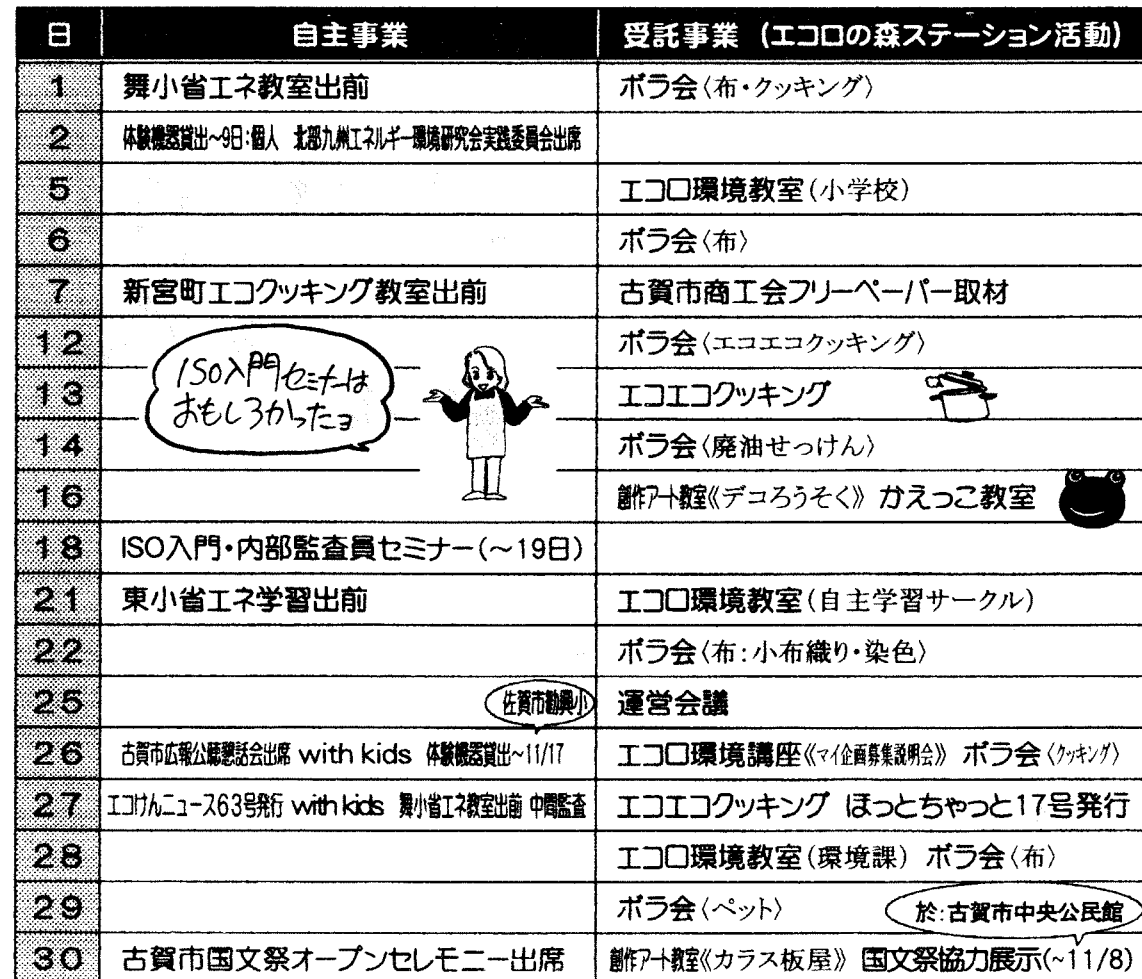 日 自主事業 受託事業 (エコロの森ステーション活動)
1 舞小省エネ教室出前 ボラ会〈布・クッキング〉
2 体験機器貸出~9日:個人 北部九州エネルギー環境研究会実践委員会出席
5 エコロ環境教室(小学校)
6 ボラ会〈布〉
7 新宮町エコクッキング教室出前 古賀市商工会フリーペーパー取材
12 ボラ会〈エコエコクッキング〉
ISO入門セミナーは
おもしろかったョ
13 エコエコクッキング
14 ボラ会〈廃油せっけん〉
16 創作アート教室《デコろうそく》 かえっこ教室
18 ISO入門・内部監査員セミナー(~19日)
21 東小省エネ学習出前 エコロ環境教室(自主学習サークル)
22 ボラ会〈布:小布織り・染色〉
25 運営会議
佐賀市勧興小
26 古賀市広報公聴懇話会出席 with kids 体験機器貸出~11/17 エコロ環境講座《マイ企画募集説明会》 ボラ会〈クッキング〉
27 エコけんニュース63号発行 with kids 舞小省エネ教室出前 中間監査 エコエコクッキング ほっとちゃっと17号発行
28 エコロ環境教室(環境課) ボラ会〈布〉
29 ボラ会〈ペット〉
於:古賀市中央公民館
30 古賀市国文祭オープンセレモニー出席 創作アート教室《カラス板屋》 国文祭協力展示(~11/8)